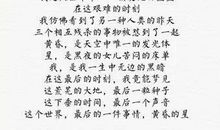 在这艰难的时刻
我仿佛看到了另一种人类的昨天
三个相互残杀的事物被怼到了一起
黄昏，是天空中唯一的发光体
星，是黑夜的女儿苦闷的床单
我，是我一生中无边的黑暗
在这最后的时刻，我竟能梦见
这荒芜的大地，最后一粒种子
这下垂的时间，最后一个声音
这个世界，最后的一件事情，黄昏的星